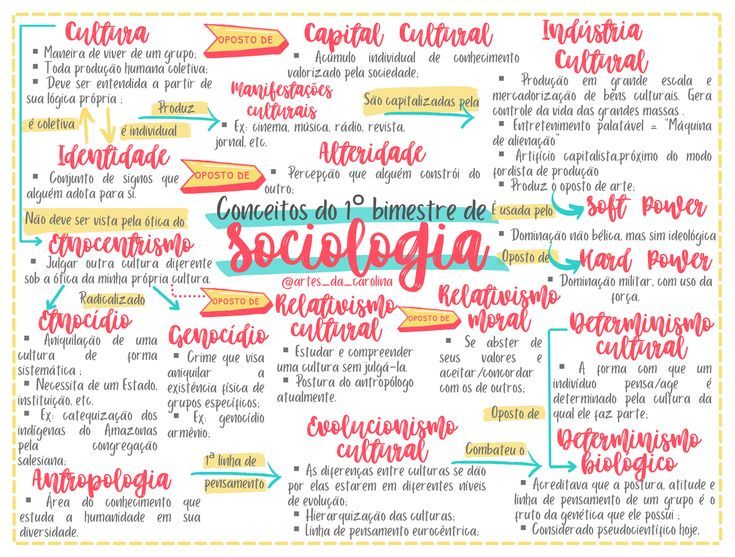 Cultura
▪ Maneira de viver de um grupo;
▪ Toda produção humana coletiva;
▪ Deve ser entendida a partir de
sua lógica própria ;
OPOSTO DE
Capital Cultural
▪ Acúmulo individual de conhecimento
valorizado pela sociedade;
Indústria
Cultural
▪ Produção em grande escala e
mercadorização de bens culturais. Gera
controle da vida das grandes massas .
▪ Entretenimento palatável = "Máquina
de alienação"
▪ Artifício capitalista,próximo do modo
fordista de produção
▪ Produz o oposto de arte;
é coletiva
é individual
Produz
Manifestações
culturais
▪ Ex: cinema, música, rádio, revista,
jornal, etc.
São capitalizadas pela
Identidade
▪ Conjunto de signos que
alguém adota para si.
OPOSTO DE
Alteridade
▪ Percepção que alguém constrói do
outro;
Conceitos do 1º bimestre de
sociologia
@artes_da_carolina
É usada pelo
Soft Power
▪ Dominação não bélica, mas sim ideológica
Oposto de
Hard Power
▪ Dominação militar, com uso da
força.
Não deve ser vista pela ótica do
Etnocentrismo
▪ Julgar outra cultura diferente
sob a ótica da minha própria cultura.
Radicalizado
OPOSTO DE
Etnocídio
▪ Aniquilação de uma
cultura de forma
sistemática ;
▪ Necessita de um Estado,
instituição, etc.
▪ Ex: catequização dos
indígenas do Amazonas
pela congregação
salesiana;
Genocídio
▪ Crime que visa
aniquilar a
existência física de
grupos específicos;
▪ Ex: genocídio
armênio;
Relativismo
cultural
▪ Estudar e compreender
uma cultura sem julgá-la.
▪ Postura do antropólogo
atualmente.
OPOSTO DE
Relativismo
moral
▪ Se abster de
seus valores e
aceitar/concordar
com os de outros;
Determinismo
cultural
▪ A forma com que um
indivíduo pensa/age é
determinado pela cultura da
qual ele faz parte;
Oposto de
Determinismo
biológico
▪ Acreditava que a postura, atitude e
linha de pensamento de um grupo é o
fruto da genética que ele possui ;
▪ Considerado pseudocientífico hoje.
Antropologia
▪ Área do conhecimento que
estuda a humanidade em sua
diversidade.
1ª linha de
pensamento
Evolucionismo
cultural
▪ As diferenças entre culturas se dão
por elas estarem em diferentes níveis
de evolução;
▪ Hierarquização das culturas;
▪ Linha de pensamento eurocêntrica;
Combateu o